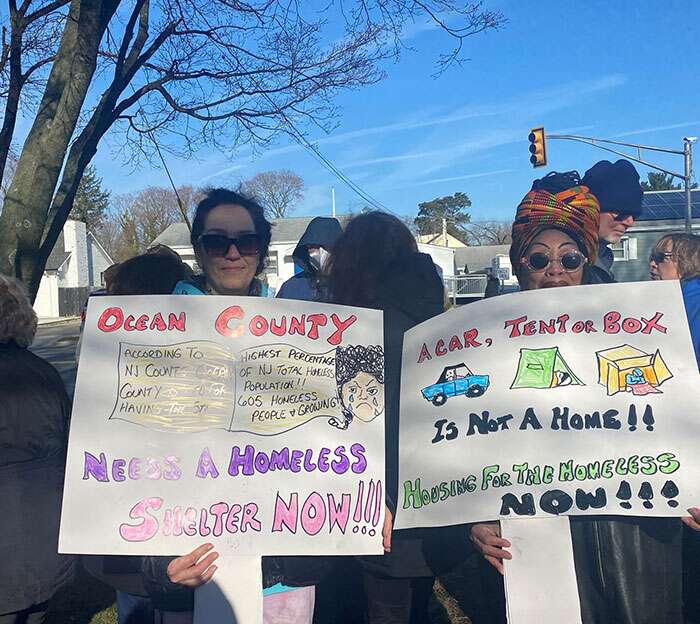 OCEAN COUNTY
ACCORDING TO
NJ COUNTS, OCEAN
COUNTY IS
HAVING THE
HIGHEST PERCENTAGE
OF NJ TOTAL HOMELESS
POPULATION!!
605 HOMELESS
PEOPLE & GROWING!
NEEDS A HOMELESS
SHELTER NOW!!!
A CAR, TENT OR BOX
IS NOT A HOME!!
HOUSING FOR THE HOMELESS
NOW!!!